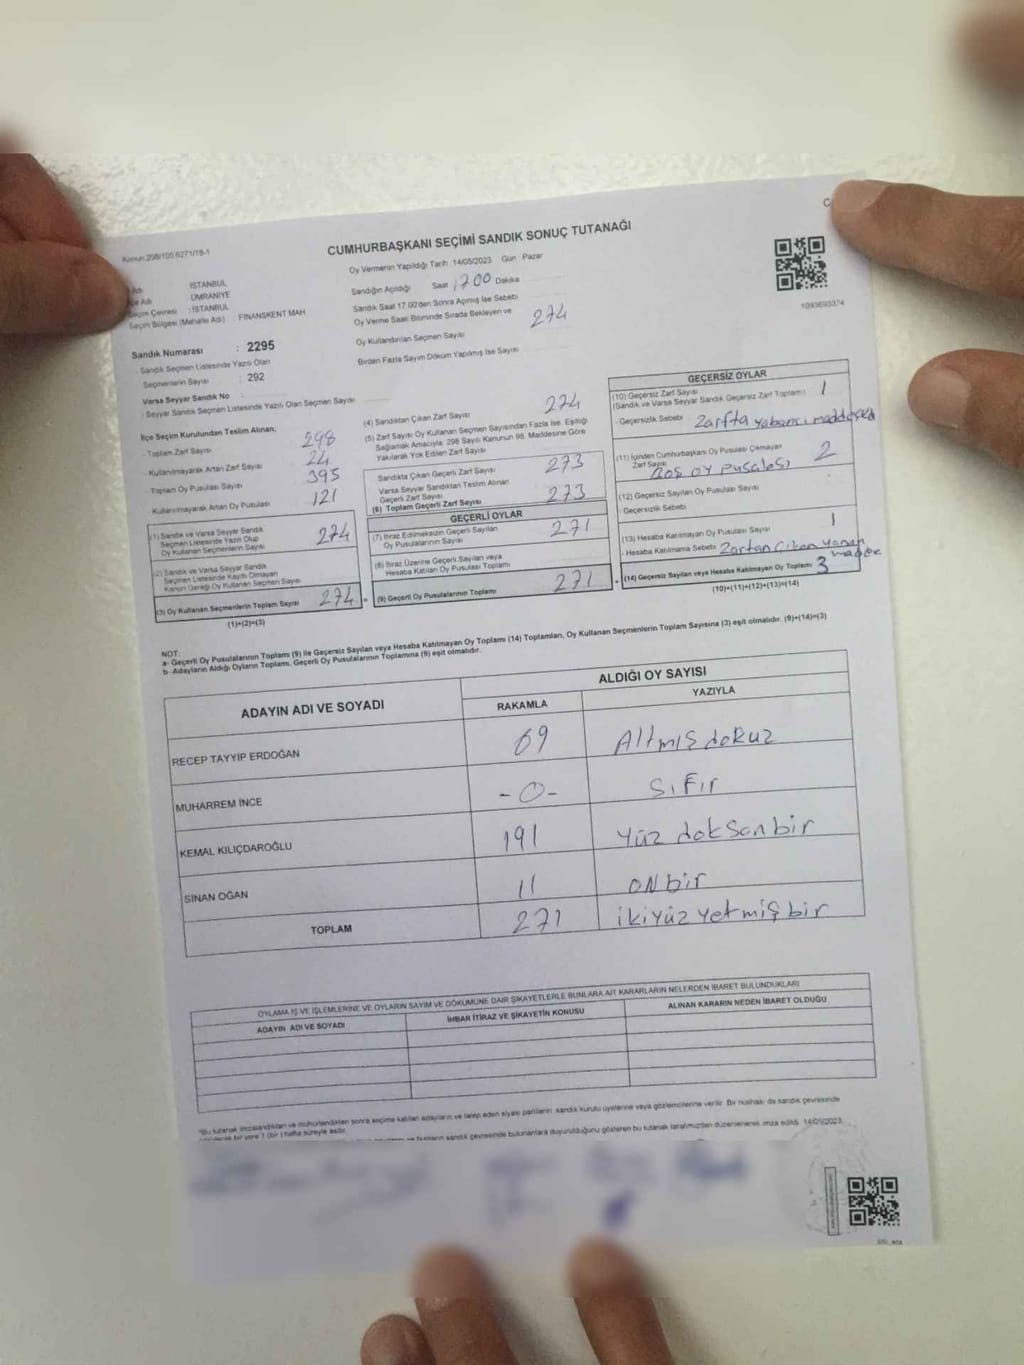 Kanun 298/105,6271/18-1
CUMHURBAŞKANI SEÇİMİ SANDIK SONUÇ TUTANAĞI
Adı : İSTANBUL
İlçe Adı : ÜMRANİYE
Seçim Çevresi : İSTANBUL
Seçim Bölgesi (Mahalle Adı) : FİNANSKENT MAH
Sandık Numarası : 2295
Sandık Seçmen Listesinde Yazılı Olan
Seçmenlerin Sayısı : 292
Varsa Seyyar Sandık No :
- Seyyar Sandık Seçmen Listesinde Yazılı Olan Seçmen Sayısı
Oy Vermenin Yapıldığı Tarih : 14/05/2023 Gün : Pazar
Sandığın Açıldığı Saat 1700 Dakika
Sandık Saat 17.00'den Sonra Açılmış İse Sebebi
Oy Verme Saati Bitiminde Sırada Bekleyen ve
Oy Kullandırılan Seçmen Sayısı 274
Birden Fazla Sayım Döküm Yapılmış İse Sayısı
1093693374
İlçe Seçim Kurulundan Teslim Alınan;
- Toplam Zarf Sayısı 298
- Kullanılmayarak Artan Zarf Sayısı 24
- Toplam Oy Pusulası Sayısı 395
Kullanılmayarak Artan Oy Pusulası 121
(1) Sandık ve Varsa Seyyar Sandık
Seçmen Listesinde Yazılı Olup
Oy Kullanan Seçmenlerin Sayısı 274
(2) Sandık ve Varsa Seyyar Sandık
Seçmen Listesinde Kayıtlı Olmayan
Kanun Gereği Oy Kullanan Seçmen Sayısı
(3) Oy Kullanan Seçmenlerin Toplam Sayısı 274
(1)+(2)=(3)
(4) Sandıktan Çıkan Zarf Sayısı 274
(5) Zarf Sayısı Oy Kullanan Seçmen Sayısından Fazla İse, Eşitliği
Sağlamak Amacıyla; 298 Sayılı Kanunun 98. Maddesine Göre
Yakılarak Yok Edilen Zarf Sayısı
Sandıkta Çıkan Geçerli Zarf Sayısı 273
Varsa Seyyar Sandıktan Teslim Alınan
Geçerli Zarf Sayısı
(6) Toplam Geçerli Zarf Sayısı 273
GEÇERLİ OYLAR
(7) İtiraz Edilmeksizin Geçerli Sayılan
Oy Pusulalarının Sayısı 271
(8) İtiraz Üzerine Geçerli Sayılan veya
Hesaba Katılan Oy Pusulası Toplamı
(9) Geçerli Oy Pusulalarının Toplamı 271
GEÇERSİZ OYLAR
(10) Geçersiz Zarf Sayısı
(Sandık ve Varsa Seyyar Sandık Geçersiz Zarf Toplamı) 1
- Geçersizlik Sebebi Zarfta yabancı madde
(11) İçinden Cumhurbaşkanı Oy Pusulası Çıkmayan
Zarf Sayısı Boş oy pusalası 2
(12) Geçersiz Sayılan Oy Pusulası Sayısı
Geçersizlik Sebebi
(13) Hesaba Katılmayan Oy Pusulası Sayısı 1
- Hesaba Katılmama Sebebi Zarftan Çıkan yanan madde
(14) Geçersiz Sayılan veya Hesaba Katılmayan Oy Toplamı 3
(10)+(11)+(12)+(13)=(14)
NOT:
a- Geçerli Oy Pusulalarının Toplamı (9) ile Geçersiz Sayılan veya Hesaba Katılmayan Oy Toplamı (14) Toplamları, Oy Kullanan Seçmenlerin Toplam Sayısına (3) eşit olmalıdır. (9)+(14)=(3)
b- Adayların Aldığı Oyların Toplamı, Geçerli Oy Pusulalarının Toplamına (9) eşit olmalıdır.
ADAYIN ADI VE SOYADI
ALDIĞI OY SAYISI
RAKAMLA YAZIYLA
RECEP TAYYİP ERDOĞAN 69 Altmış dokuz
MUHARREM İNCE -0- sıfır
KEMAL KILIÇDAROĞLU 191 Yüz doksanbir
SİNAN OĞAN 11 ONbir
TOPLAM 271 ikiyüz yetmiş bir
OYLAMA İŞ VE İŞLEMLERİNE VE OYLARIN SAYIM VE DÖKÜMÜNE DAİR ŞİKAYETLERLE BUNLARA AİT KARARLARIN NELERDEN İBARET BULUNDUKLARI
ADAYIN ADI VE SOYADI İHBAR İTİRAZ VE ŞİKAYETİN KONUSU ALINAN KARARIN NEDEN İBARET OLDUĞU
"Bu tutanak imzalandıktan ve mühürlendikten sonra seçime katılan adayların ve talep eden siyasi partilerin sandık kurulu üyelerine veya gözlemcilerine verilir. Bir nüshası da sandık çevresinde
bir yere 1 (bir) hafta süreyle asılır.
sandık çevresinde bulunanlara duyurulduğunu gösteren bu tutanak tarafımızdan düzenlenerek imza edildi. 14/05/2023